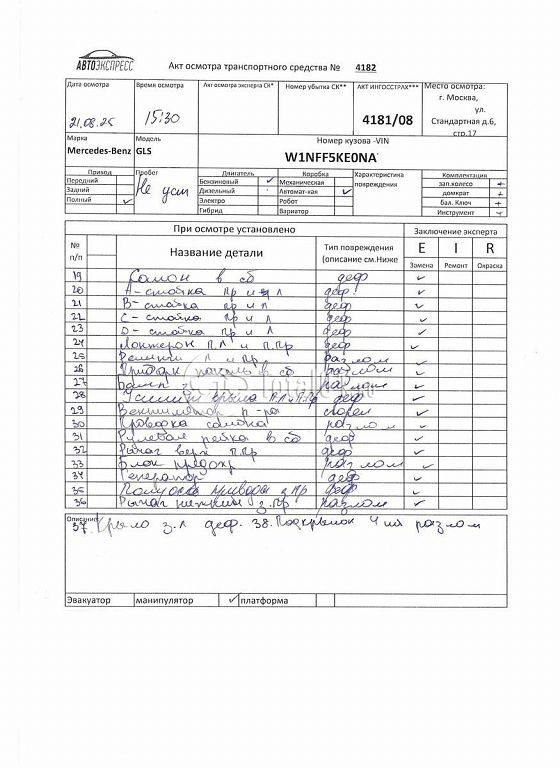 АВТОЭКСПРЕСС
Акт осмотра транспортного средства № 4182
Дата осмотра
21.08.25
Время осмотра
15:30
Акт осмотра эксперта СК*
Номер убытка СК**
АКТ ИНГОССТРАХ***
4181/08
Место осмотра:
г. Москва,
ул.
Стандартная д.6,
стр.17
Марка
Mercedes-Benz
Модель
GLS
Номер кузова -VIN
W1NFF5KE0NA
Привод
Передний
Задний
Полный ✓
Пробег
Не уст
Двигатель
Бензиновый ✓
Дизельный
Электро
Гибрид
Коробка
Механическая
Автомат-кая ✓
Робот
Вариатор
Характеристика
повреждения
Комплектация
зап.колесо +
домкрат +
бал. Ключ +
Инструмент +
При осмотре установлено
Заключение эксперта
№
п/п
Название детали
Тип повреждения
(описание см.Ниже
E I R
Замена Ремонт Окраска
19 Салон в сб деф ✓
20 А-стойка пр и л деф ✓
21 В-стойка пр и л деф ✓
22 С-стойка пр и л деф ✓
23 D-стойка пр и л деф ✓
24 Лонжерон п.л и п.пр деф ✓
25 Ремни л и пр. разлом ✓
26 в сб разлом ✓
27 разлом ✓
28 крыла п.л п.пр деф ✓
29 Вентилятор ✓
30 Проводка салона разлом ✓
31 Рулевая рейка в сб деф ✓
32 Рычаг верх п.пр деф ✓
33 Блок предохр разлом ✓
34 Генератор деф ✓
35 приводы пр деф ✓
36 Рычаг нижний з.пр разлом ✓
Описание
37. Крыло з.л деф. 38. Подкрылок 4 шт разлом
Эвакуатор манипулятор ✓ платформа